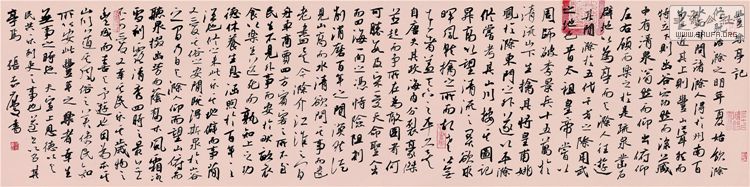 豐樂亭記
修既治滁之明年夏始飲滁
水而甘問諸滁人得於州南百
步之近其上則豐山聳然而
特立下則幽谷窈然而深藏
中有清泉滃然而仰出俯仰
左右顧而樂之於是疏泉鑿石
闢地以為亭而與滁人往遊
其間滁於五代干戈之際用武
之地也昔太祖皇帝嘗以
周師破李景兵十五萬於
清流山下生擒其將皇甫暉姚
鳳於滁東門之外遂以平滁
修嘗考其山川按其圖記
升高以望清流之關欲求
暉鳳就擒之所而故老皆無
在者蓋天下之平久矣
自唐失其政海內分裂豪傑
並起而爭所在為敵國者何
可勝數及宋受天命聖人出
而四海一向之憑恃險阻剷
削消磨百年之間漠然徒
見山高而水清欲問其事而遺
老盡矣今滁介江淮之間
舟車商賈四方賓客之所不至
民生不見外事而安於畎畝衣
食以樂生送死而孰知上之功
德休養生息涵煦於百年之
深也修之來此樂其地僻而事簡
又愛其俗之安閒既得斯泉於山
谷之間乃日與滁人仰而望山俯而
聽泉掇幽芳而蔭喬木風霜冰
雪刻露清秀四時之景無不
可愛又幸其民樂其歲物之
豐成而喜與予遊也因為本其
山川道其風俗之美使民知
所以安此豐年之樂者幸生
無事之時也夫宣上恩德以與
民共樂刺史之事也遂書以名其
亭焉
WWW.SHUFA.ORG